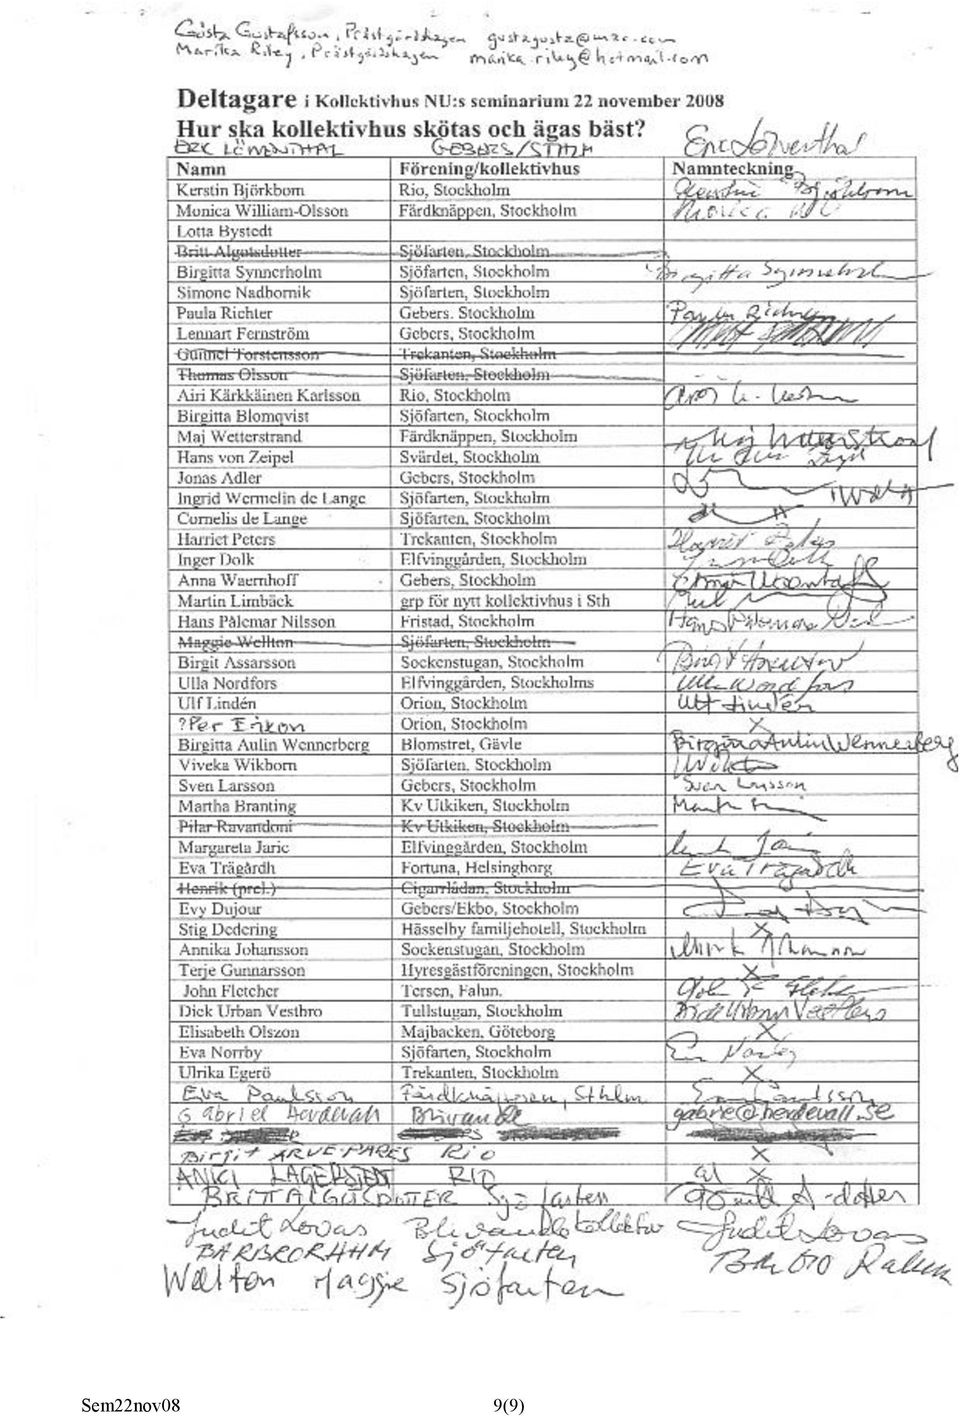 Gösta Gustafsson, Prästgårdshagen
Marika Riley, Prästgårdshagen marika.riley@hotmail.com
Deltagare i Kollektivhus NU:s seminarium 22 november 2008
Hur ska kollektivhus skötas och ägas bäst?
ERIC LÖWENTHAL GEBERS/STHLM Eric Löwenthal
Namn Förening/kollektivhus Namnteckning
Kerstin Björkbom Rio, Stockholm Kerstin Björkbom
Monica William-Olsson Färdknäppen, Stockholm Monica WO
Lotta Bystedt
Britt Algotsdotter Sjöfarten, Stockholm
Birgitta Synnerholm Sjöfarten, Stockholm Birgitta Synnerholm
Simone Nadbornik Sjöfarten, Stockholm
Paula Richter Gebers. Stockholm Paula Richter
Lennart Fernström Gebers, Stockholm
Gunnel Torstensson Trekanten, Stockholm
Thomas Olsson Sjöfarten, Stockholm
Airi Kärkkäinen Karlsson Rio, Stockholm
Birgitta Blomqvist Sjöfarten, Stockholm
Maj Wetterstrand Färdknäppen, Stockholm Maj Wetterstrand
Hans von Zeipel Svärdet, Stockholm
Jonas Adler Gebers, Stockholm
Ingrid Wermelin de Lange Sjöfarten, Stockholm
Cornelis de Lange Sjöfarten, Stockholm
Harriet Peters Trekanten, Stockholm Harriet Peters
Inger Dolk Elfvinggården, Stockholm
Anna Waernhoff Gebers, Stockholm
Martin Limbäck grp för nytt kollektivhus i Sth
Hans Pålemar Nilsson Fristad, Stockholm
Maggie Wellton Sjöfarten, Stockholm
Birgit Assarsson Sockenstugan, Stockholm Birgit Assarsson
Ulla Nordfors Elfvinggården, Stockholms Ulla Nordfors
Ulf Lindén Orion, Stockholm Ulf Lindén
?Per Orion, Stockholm X
Birgitta Aulin Wennerberg Blomstret, Gävle Birgitta Aulin Wennerberg
Viveka Wikborn Sjöfarten. Stockholm
Sven Larsson Gebers, Stockholm Sven Larsson
Martha Branting Kv Utkiken, Stockholm
Pilar Ravandoni Kv Utkiken, Stockholm
Margareta Jaric Elfvinggården, Stockholm
Eva Trägårdh Fortuna, Helsingborg Eva Trägårdh
Henrik (prel.) Cigarrlådan, Stockholm
Evy Dujour Gebers/Ekbo, Stockholm
Stig Dedering Hässelby familjehotell, Stockholm X
Annika Johansson Sockenstugan, Stockholm
Terje Gunnarsson Hyresgästföreningen, Stockholm X
John Fletcher Tersen, Falun.
Dick Urban Vestbro Tullstugan, Stockholm Dick Urban Vestbro
Elisabeth Olszon Majbacken, Göteborg X
Eva Norrby Sjöfarten, Stockholm
Ulrika Egerö Trekanten, Stockholm X
Eva Paulsson Färdknäppen, Sthlm
Gabriel Herdevall gabriel@herdevall.se
Birgit ARVE-PARES Rio X
ANKI LAGERSTEDT RIO X
BRITT ALGOTSDOTTER Sjöfarten
Judit Lovas Judit Lovas
Sjöfarten
Wellton Maggie Sjöfarten
Sem22nov08 9(9)